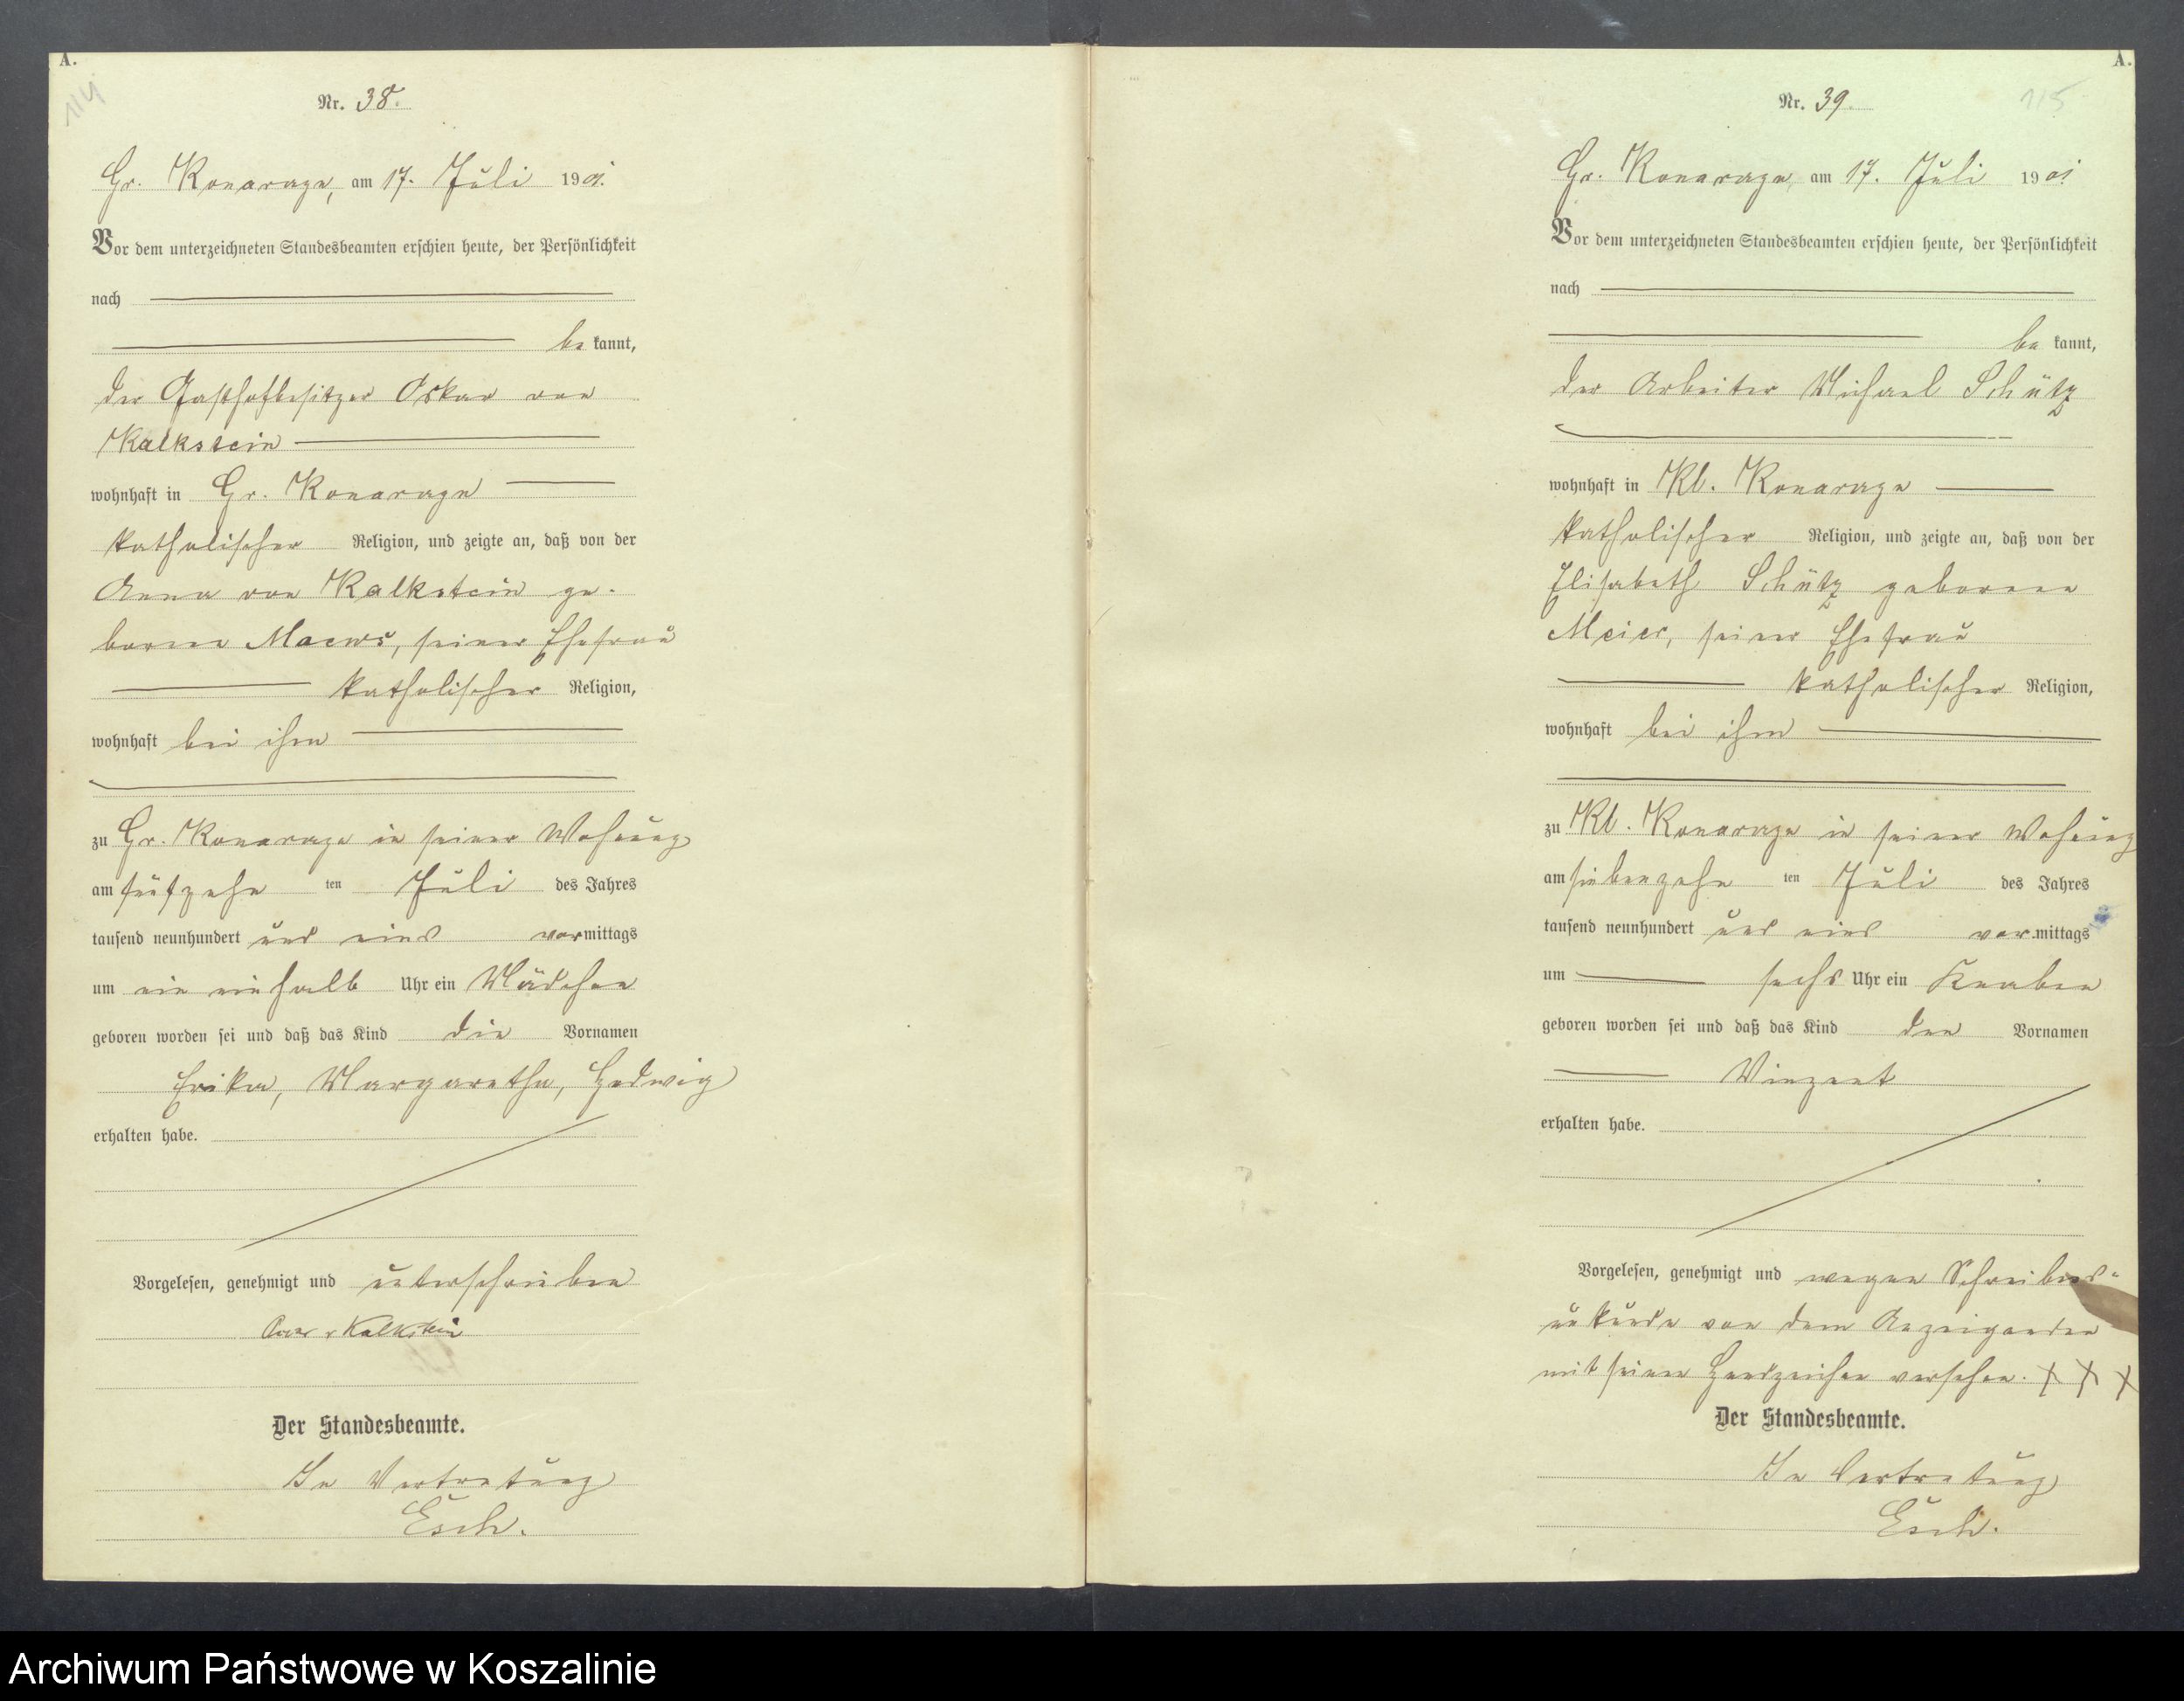 A.
114
Nr. 38.
Gr. Konarzyn, am 17. Juli 1901.
Vor dem unterzeichneten Standesbeamten erschien heute, der Persönlichkeit
nach
be kannt,
der Gasthofbesitzer Oskar von
Kalkstein
wohnhaft in Gr. Konarzyn
katholischer Religion, und zeigte an, daß von der
Anna von Kalkstein ge-
borene Maews, seiner Ehefrau
katholischer Religion,
wohnhaft bei ihm
zu Gr. Konarzyn in seiner Wohnung
am fünfzehn ten Juli des Jahres
tausend neunhundert und eins vormittags
um ein einhalb Uhr ein Mädchen
geboren worden sei und daß das Kind die Vornamen
Erika, Margarethe, Hedwig
erhalten habe.
Vorgelesen, genehmigt und unterschrieben
Oscar v Kalkstein
Der Standesbeamte.
In Vertretung
Esch.
A.
115
Nr. 39.
Gr. Konarzyn, am 17. Juli 1901
Vor dem unterzeichneten Standesbeamten erschien heute, der Persönlichkeit
nach
be kannt,
der Arbeiter Michael Schütz
wohnhaft in Kl. Konarzyn
katholischer Religion, und zeigte an, daß von der
Elisabeth Schütz geborene
Meier, seiner Ehefrau
katholischer Religion,
wohnhaft bei ihm
zu Kl. Konarzyn in seiner Wohnung
am siebenzehn ten Juli des Jahres
tausend neunhundert und eins vormittags
um sechs Uhr ein Knaben
geboren worden sei und daß das Kind den Vornamen
Vinzent
erhalten habe.
Vorgelesen, genehmigt und wegen Schreibens-
unkunde von dem Anzeigenden
mit seinen Handzeichen versehen. X X X
Der Standesbeamte.
In Vertretung
Esch.
Archiwum Państwowe w Koszalinie